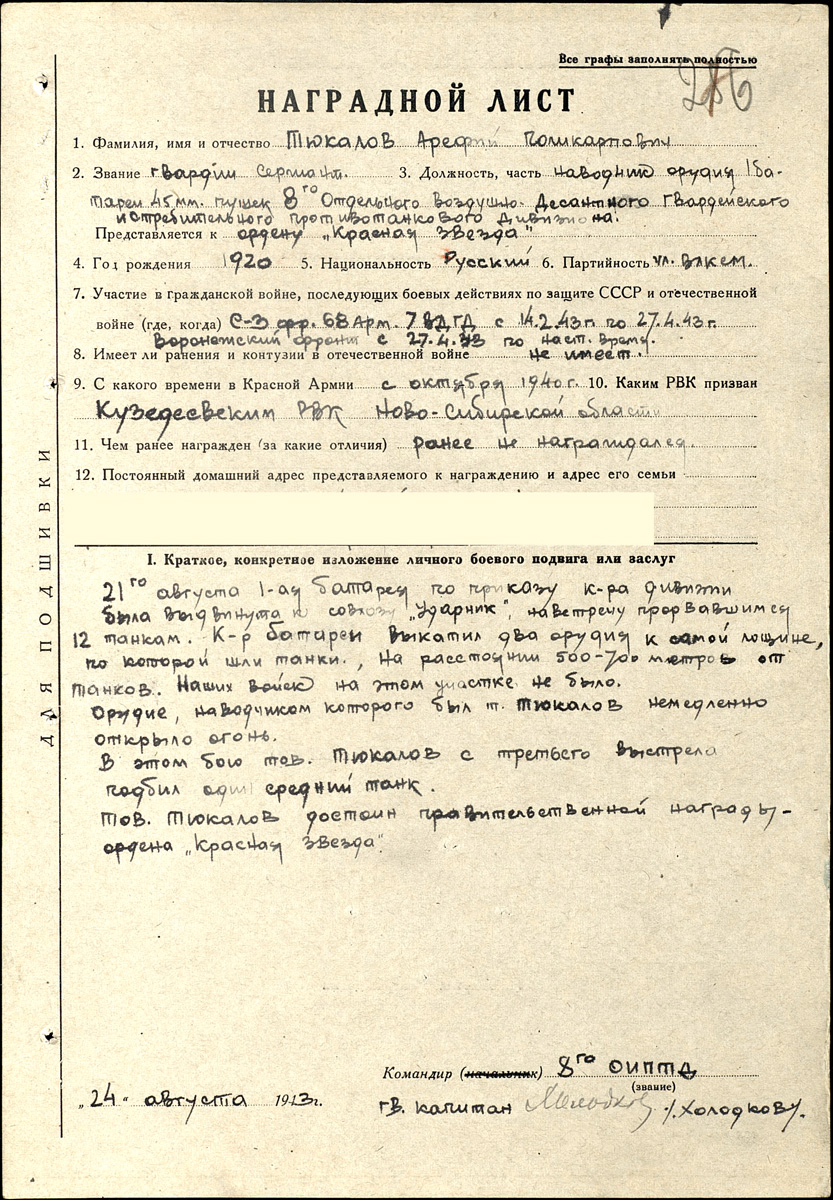 Все графы заполнять полностью
НАГРАДНОЙ ЛИСТ
1. Фамилия, имя и отчество Тюкалов Арефий Поликарпович
2. Звание гвардии Сержант. 3. Должность, часть наводчик орудия 1 ба-
тареи 45 мм. пушек 8го Отдельного Воздушно-Десантного Гвардейского
истребительного противотанкового дивизиона.
Представляется к ордену „Красная Звезда"
4. Год рождения 1920 5. Национальность Русский 6. Партийность чл. ВЛКСМ.
7. Участие в гражданской войне, последующих боевых действиях по защите СССР и отечественной
войне (где, когда) С-З фр. 68 Арм. 7 ВДГД с 14.2.43г. по 27.4.43г.
Воронежский фронт с 27.4.43 по наст. время.
8. Имеет ли ранения и контузии в отечественной войне не имеет.
9. С какого времени в Красной Армии с октября 1940г. 10. Каким РВК призван
Кузедеевским РВК Ново-Сибирской области
11. Чем ранее награжден (за какие отличия) ранее не награждался.
12. Постоянный домашний адрес представляемого к награждению и адрес его семьи
I. Краткое, конкретное изложение личного боевого подвига или заслуг
21го августа 1-ая батарея по приказу к-ра дивизии
была выдвинута к совхозу „Ударник", навстречу прорвавшимся
12 танкам. К-р батареи выкатил два орудия к самой лощине,
по которой шли танки., на расстоянии 500-700 метров от
танков. Наших войск на этом участке не было.
Орудие, наводчиком которого был т. Тюкалов немедленно
открыло огонь.
В этом бою тов. Тюкалов с третьего выстрела
подбил один средний танк.
Тов. Тюкалов достоин правительственной награды-
ордена „Красная Звезда"
Командир (начальник) 8го ОИПТД
(звание)
„24" августа 1943г. гв. капитан /Холодков/.
ДЛЯ ПОДШИВКИ